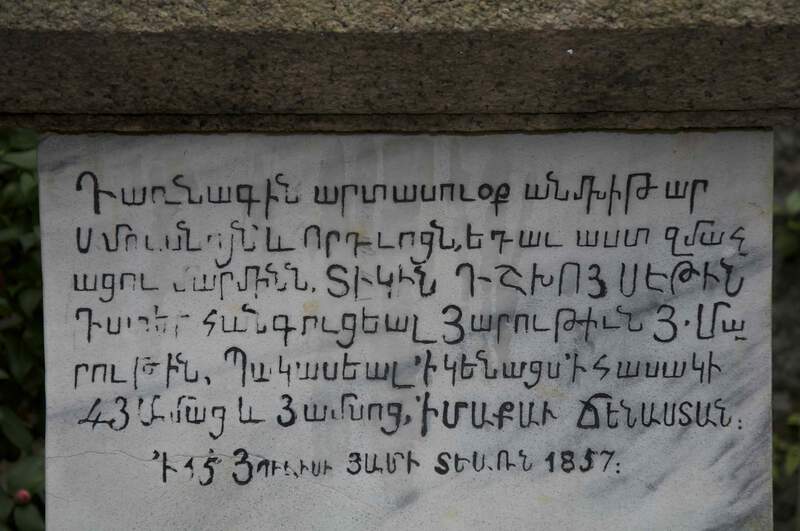 Դառնագին արտասուօք անմխիթար
և որդւոցն, եդաւ աստ զմահ
ացու մարմինն, ՏԻԿԻՆ ԴՇԽՈՅ ՍԵԹԻՆ
Դստեր Հանգուցեալ Յարութիւն Յ. Մա
րութին, Պակասեալ ՚ի կենացս ՚ի Հասակի
43 Ամաց և 3 ամսոց, ՚ԻՄԱՔԱՒ ՃԵՆԱՍՏԱՆ:
՚Ի 15 Յուլիսի ՅԱՄԻ ՏԵԱՌՆ 1857: